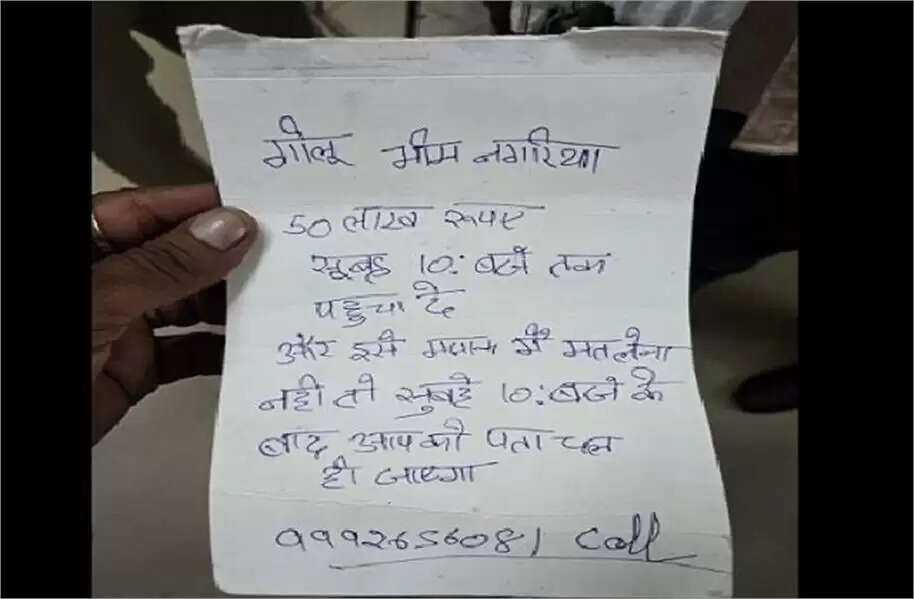 गोलू भीम नगरिया
50 लाख रूपए
सूबह 10: बजे तक
पहुचा दे
और इसे मजाक में मत लेना
नही तो सुबहे 10: बजे के
बाद आपको पता चल
ही जाएगा
9992656081 Call